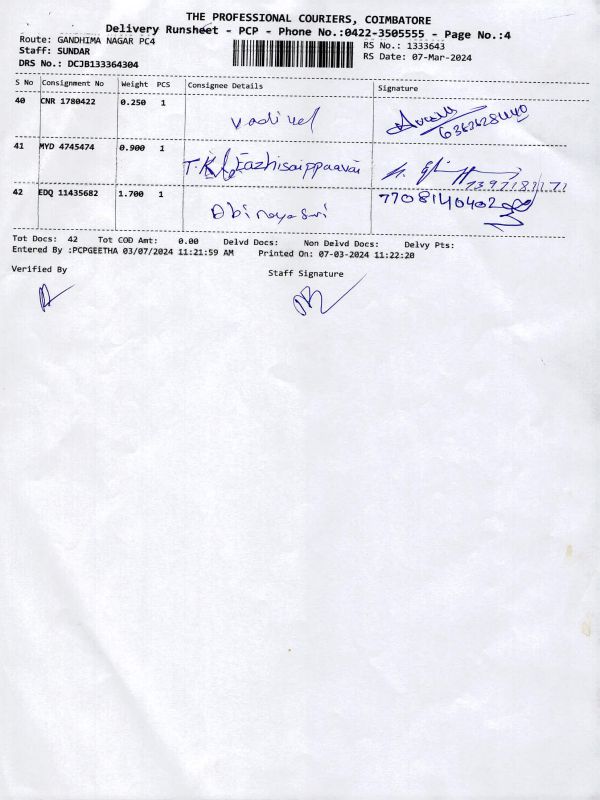 THE PROFESSIONAL COURIERS, COIMBATORE
Delivery Runsheet - PCP - Phone No.:0422-3505555 - Page No.:4
Route: GANDHIMA NAGAR PC4 RS No.: 1333643
Staff: SUNDAR RS Date: 07-Mar-2024
DRS No.: DCJB133364304
S No Consignment No Weight PCS Consignee Details Signature
40 CNR 1780422 0.250 1
Vadivel
41 MYD 4745474 0.900 1
T.K.
42 EDQ 11435682 1.700 1 7708140402
Abinayasri
Tot Docs: 42 Tot COD Amt: 0.00 Delvd Docs: Non Delvd Docs: Delvy Pts:
Entered By :PCPGEETHA 03/07/2024 11:21:59 AM Printed On: 07-03-2024 11:22:20
Verified By Staff Signature